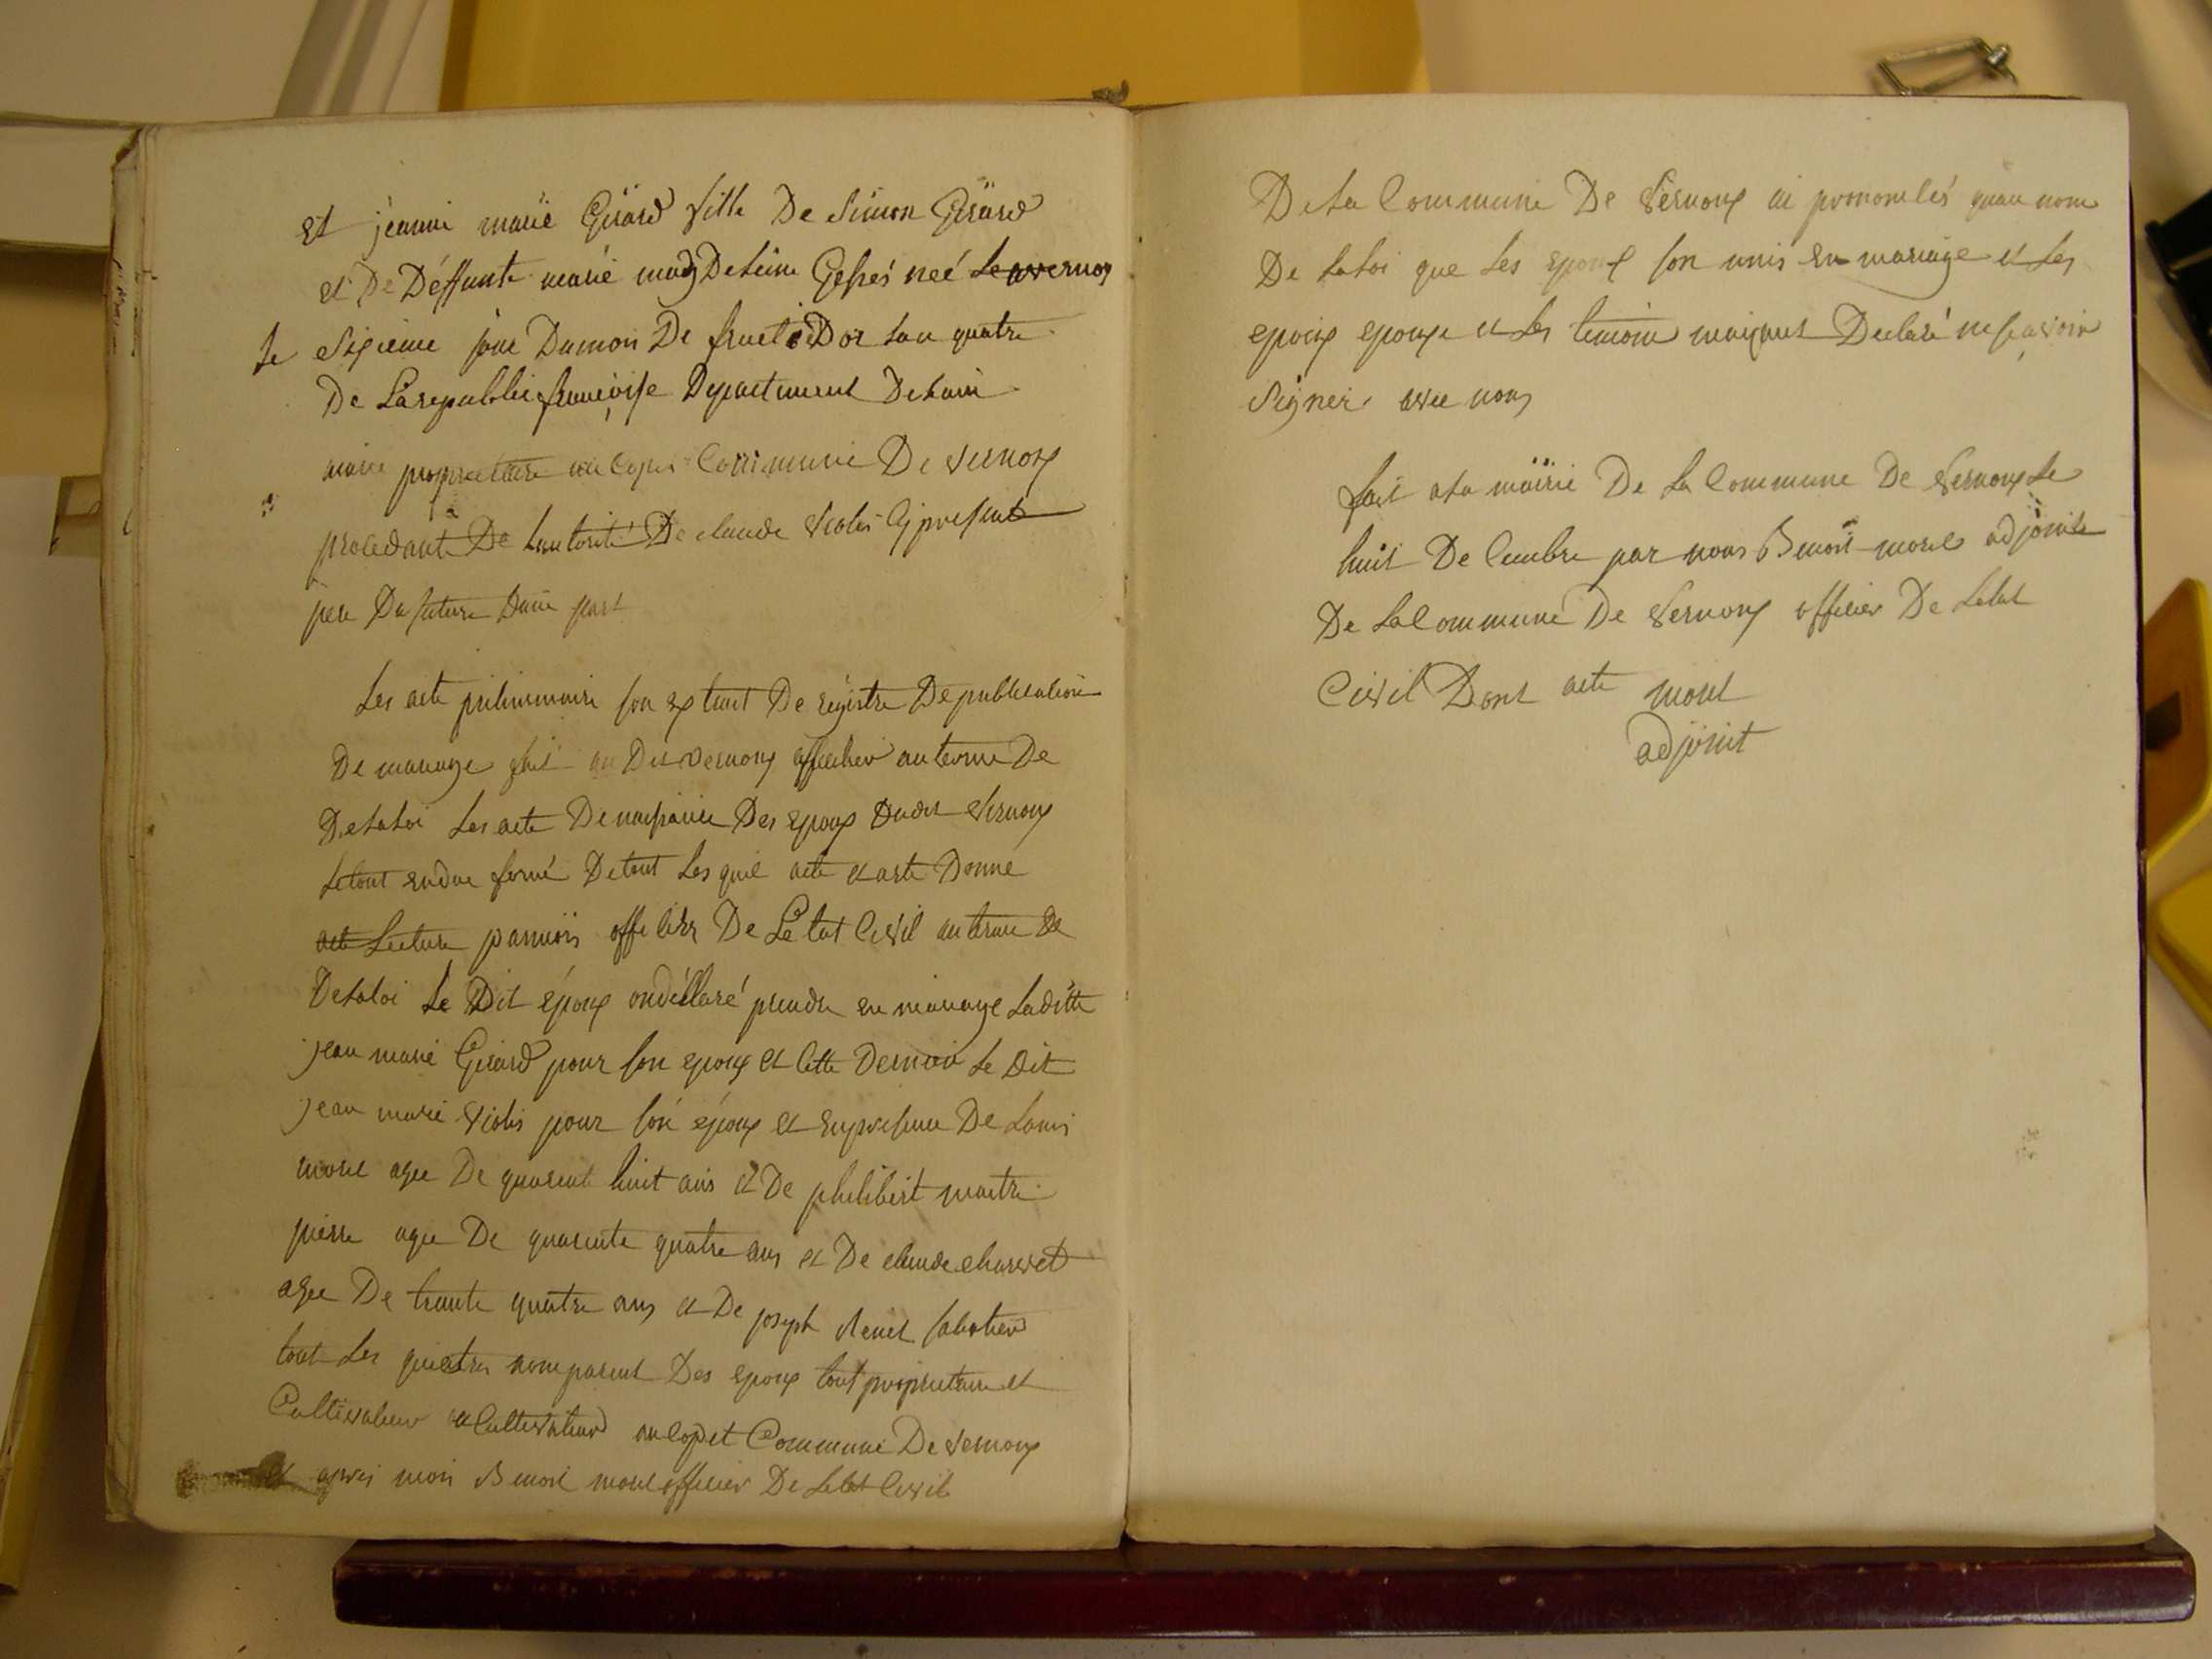 et jeanne marie Girard fille De Simon Girard
et De Déffunte marie magDeleine née vernoy
le Sixieme jour Dumois De fructiDor lan quatre
De Larepublic francoise Departement Delain
marie propriettaire Commune De vernoux
procedant De Lautorité De claude violet present
pere Du future Dune part
Les acte preliminaire son extrait De registre Depublication
De mariage fait au Dit vernoux afficher auterme De
Delaloi Les acte Denaissance Des epoux Dudit vernoux
letout endue formé Detout Les quel acte et acte Donné
acte Lecture parmois officier De Letat Civil auterme De
Delaloi Le Dit époux ondéllaré prendre en mariage Laditte
jean marie Girard pour son epoux et Cette Dernier Le Dit
jean marie violet pour son époux et enpresence De Louis
morel agee De quarent huit ans et De philibert maitre
pierre agee De quarente quatre ans et De claude charvet
agee De trente quatre ans et De joseph
tout Les quatres nom parent Des epoux tout proprietaire et
Cultivateur et Cultivateur au Commune De vernoux
et apres moi Benoit morel officier De Letat Civil
De la Commune De vernoux ai prononcés quau nom
De laloi que Les epoux son unis en mariage et Les
epoux epouse et Les temoin Declaré ne savoir
Signer avec nous
fait ala mairie De la Commune De vernoux Le
huit De Cembre par nous Benoit morel adjoint
De LaCommune De vernoux officier De Letat
Civil Dont acte morel
adjoint